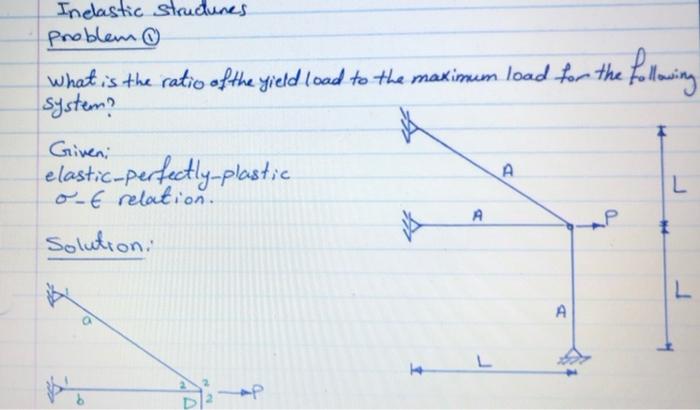 Inelastic Structures
problem ①
What is the ratio of the yield load to the maximum load for the following
system?
Given:
elastic-perfectly-plastic
σ-ϵ relation.
Solution:
A
A
P
A
L
L
L
1
a
1
b
2
2
2
D
P